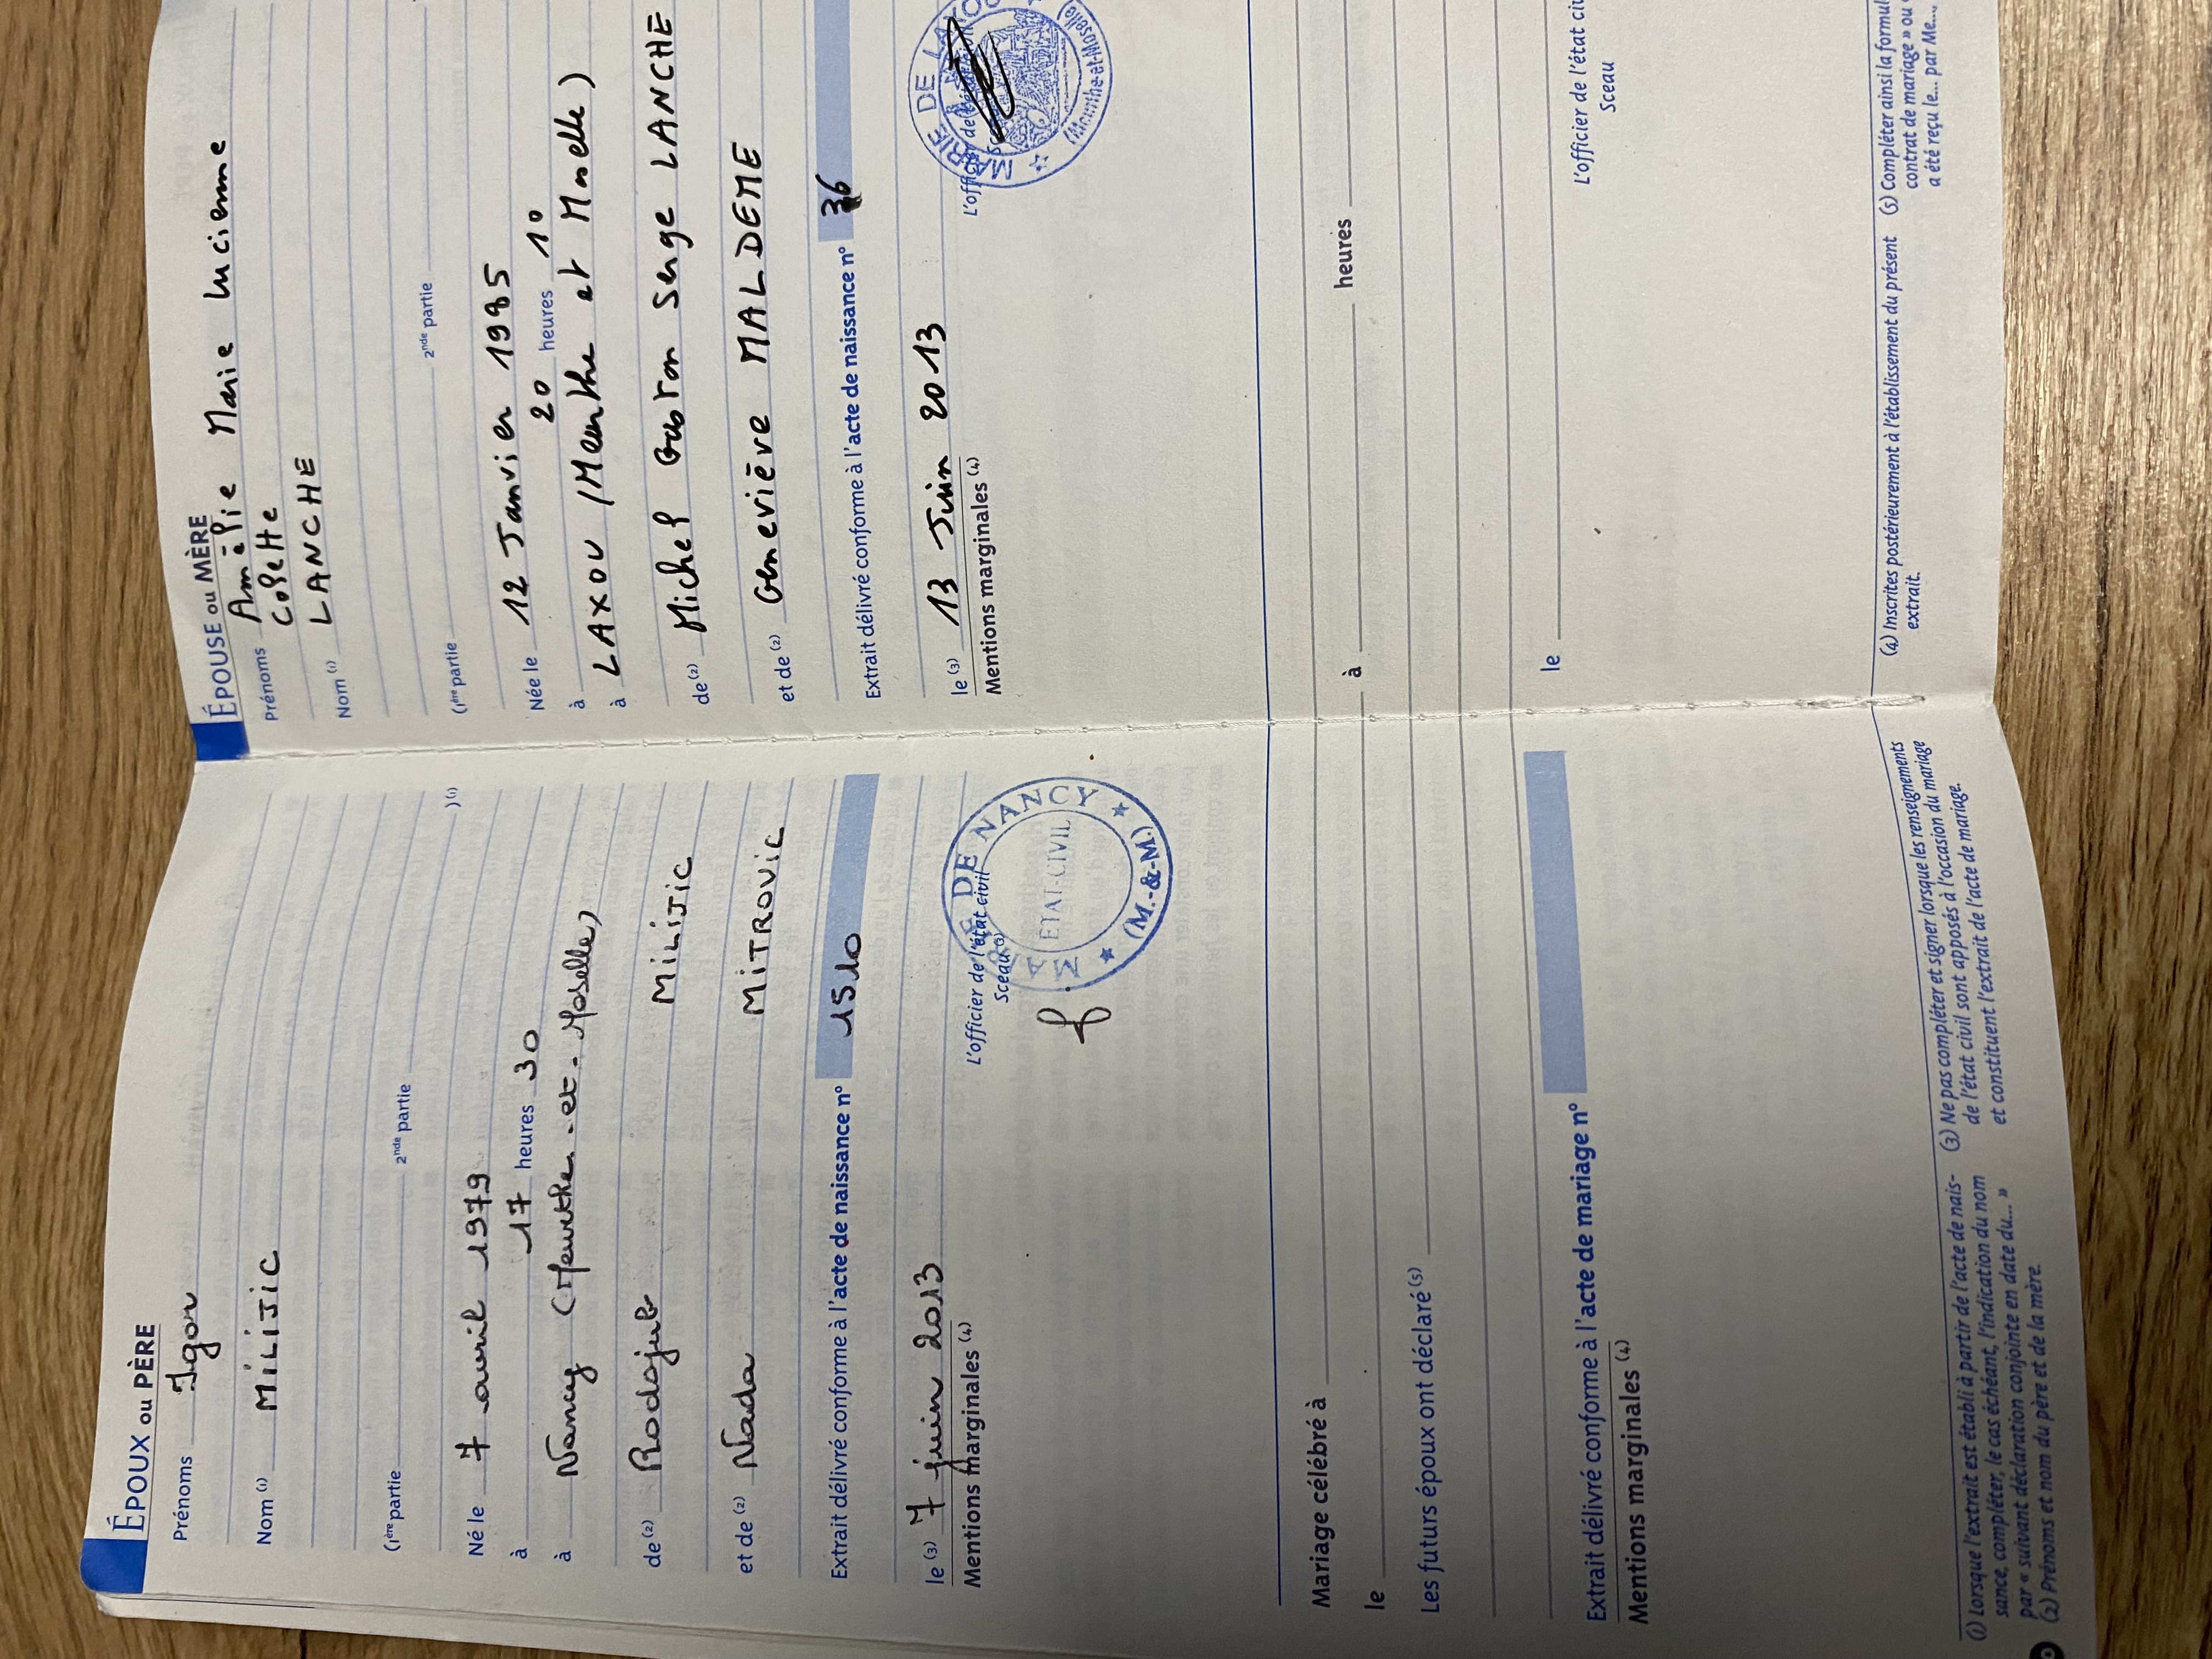 ÉPOUX ou PÈRE
Prénoms Igor
Nom (1) MiLiJiC
(1ère partie 2nde partie )(1)
Né le 7 avril 1979
à 17 heures 30
à Nancy (Meurthe-et-Moselle)
de (2) Rodojub MiLiJiC
et de (2) Nada MiTROViC
Extrait délivré conforme à l'acte de naissance n° 1510
le (3) 7 juin 2013
Mentions marginales (4)
L'officier de l'état civil
Sceau (3)
DE NANCY
ÉTAT-CIVIL
(M.-&-M.)
Mariage célébré à
le à heures
Les futurs époux ont déclaré (5)
Extrait délivré conforme à l'acte de mariage n°
Mentions marginales (4)
(1) Lorsque l'extrait est établi à partir de l'acte de nais-
sance, compléter, le cas échéant, l'indication du nom
par « suivant déclaration conjointe en date du... »
(2) Prénoms et nom du père et de la mère.
(3) Ne pas compléter et signer lorsque les renseignements
de l'état civil sont apposés à l'occasion du mariage
et constituent l'extrait de l'acte de mariage.
ÉPOUSE ou MÈRE
Prénoms Amélie Marie Lucienne
Colette
Nom (1) LANCHE
(1ère partie 2nde partie
Née le 12 Janvier 1985
à 20 heures 10
à LAXOU (Meurthe et Moselle)
de (2) Michel Gaston Serge LANCHE
et de (2) Geneviève MALDEME
Extrait délivré conforme à l'acte de naissance n° 36
le (3) 13 Juin 2013
Mentions marginales (4)
MAIRIE DE LAXOU
(Meurthe-et-Moselle)
le
L'officier de l'état civ
Sceau
(4) Inscrites postérieurement à l'établissement du présent
extrait.
(5) Compléter ainsi la formul
contrat de mariage » ou
a été reçu le... par Me...,